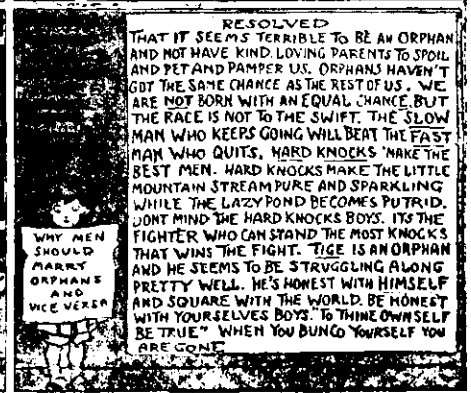 RESOLVED
THAT IT SEEMS TERRIBLE TO BE AN ORPHAN
AND NOT HAVE KIND. LOVING PARENTS TO SPOIL
AND PET AND PAMPER US. ORPHANS HAVEN'T
GOT THE SAME CHANCE AS THE REST OF US. WE
ARE NOT BORN WITH AN EQUAL CHANCE. BUT
THE RACE IS NOT TO THE SWIFT. THE SLOW
MAN WHO KEEPS GOING WILL BEAT THE FAST
MAN WHO QUITS. HARD KNOCKS MAKE THE
BEST MEN. HARD KNOCKS MAKE THE LITTLE
MOUNTAIN STREAM PURE AND SPARKLING
WHILE THE LAZY POND BECOMES PUTRID.
DONT MIND THE HARD KNOCKS BOYS. ITS THE
FIGHTER WHO CAN STAND THE MOST KNOCKS
THAT WINS THE FIGHT. TIGE IS AN ORPHAN
AND HE SEEMS TO BE STRUGGLING ALONG
PRETTY WELL. HE'S HONEST WITH HIMSELF
AND SQUARE WITH THE WORLD. BE HONEST
WITH YOURSELVES BOYS. "TO THINE OWN SELF
BE TRUE" WHEN YOU BUNCO YOURSELF YOU
ARE GONE
WHY MEN
SHOULD
MARRY
ORPHANS
AND
VICE VERSA